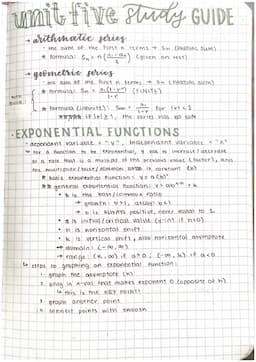 unit five study GUIDE
→ arithmetic series
- the sum of the first n terms → Sn (PARTIAL SUM)
* formula: Sn = n(a₁+aₙ/2) (given on test)
→ geometric series
- the sum of the first n terms → Sn (PARTIAL SUM)
* formula: Sn = a₁(1-rⁿ)/1-r (FINITE)
* formula (infinite): S∞ = a₁/1-r for |r|<1
if |r|≥1, the series has no sum
· EXPONENTIAL FUNCTIONS
- dependent variable = "y", independent variable = "x"
* for a function to be exponential, y has to increase/decrease
at a rate that is a multiple of the previous value (factor), and
the multiple/base/common ratio is constant (b)
* basic exponential function: y = a(b)ˣ
general exponential function: y = ab^(x-h) + k
* b is the base/common ratio
→ growth: b>1, decay: b<1
→ b is always positive, never equal to 1
* a is initial/critical value (y-int if h=0)
* h is horizontal shift
* k is vertical shift, also horizontal asymptote
→ domain: (-∞, ∞)
→ range: (k, ∞) if a>0; (-∞, k) if a<0
steps to graphing an exponential function:
1. graph the asymptote (k)
2. plug in x-val that makes exponent 0 (opposite of h)
↳ this is the KEY POINT!
3. graph another point
4. connect points with smooth